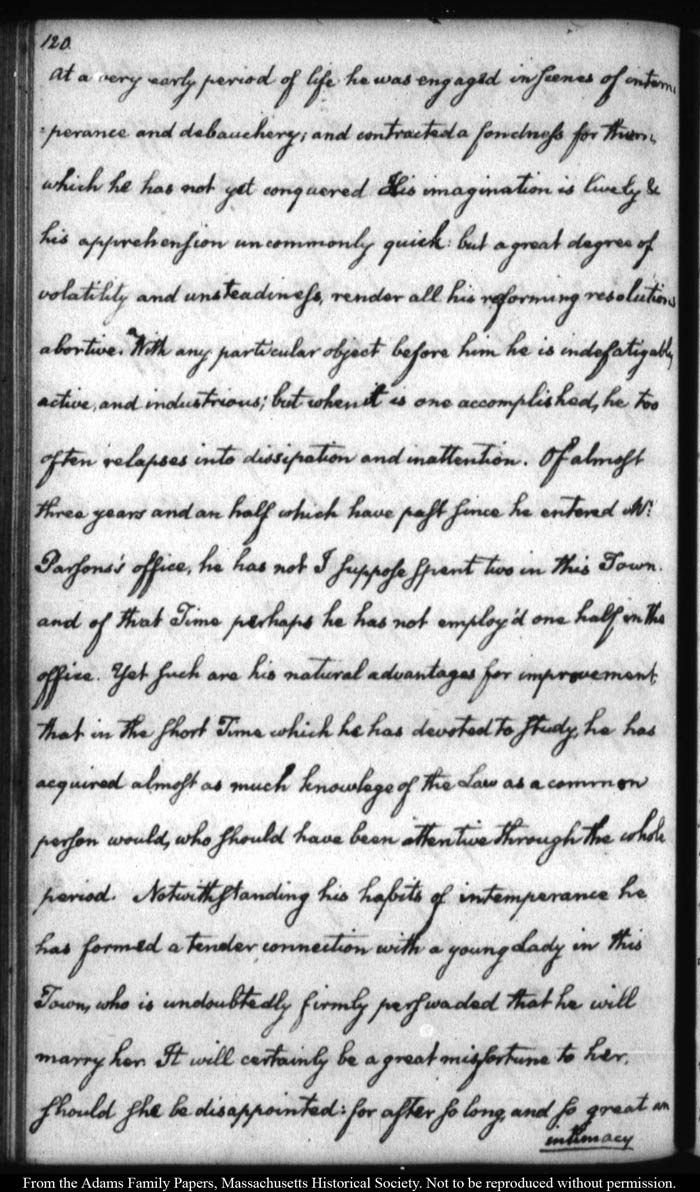 120
At a very early period of life he was engaged in scenes of intem
=perance and debauchery; and contracted a fondness for them,
which he has not yet conquered His imagination is lively &
his apprehension uncommonly quick: but a great degree of
volatility and unsteadiness, render all his reforming resolutions
abortive. With any particular object before him he is indefatigably
active, and industrious; but when it is one accomplished, he too
often relapses into dissipation and inattention. Of almost
three years and an half which have past since he entered Mr.
Parsons's office, he has not I suppose spent two in this Town.
and of that Time perhaps he has not employ'd one half in the
office. Yet such are his natural advantages for improvement,
that in the short Time which he has devoted to study, he has
acquired almost as much knowlege of the Law as a common
person would, who should have been attentive through the whole
period. Notwithstanding his habits of intemperance he
has formed a tender connection with a young Lady in this
Town, who is undoubtedly firmly perswaded that he will
marry her. It will certainly be a great misfortune to her,
should she be disappointed: for after so long, and so great an
intimacy
From the Adams Family Papers, Massachusetts Historical Society. Not to be reproduced without permission.